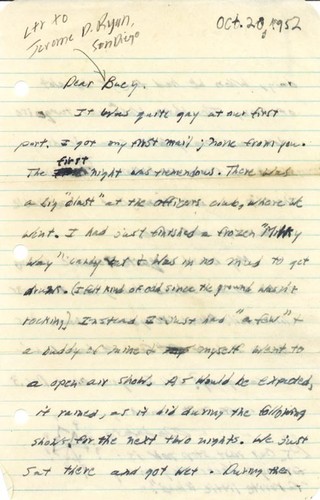 Ltr to
Jerome D. Ryan,
San Diego
Oct. 28, 1952
Dear Bucy.
It was quite gay at our first
port. I got my first mail; none from you.
The first night was tremendous. There was
a big "blast" at the officers club, where we
went. I had just finished a frozen "Milky
Way" candy bar & was in no mood to get
drunk. (I felt kind of odd since the ground wasn't
rocking) Instead I just had "a few" &
a buddy of mine & myself went to
a open air show. As would be expected,
it rained, as it did during the following
shows for the next two nights. We just
sat there and got wet. During the